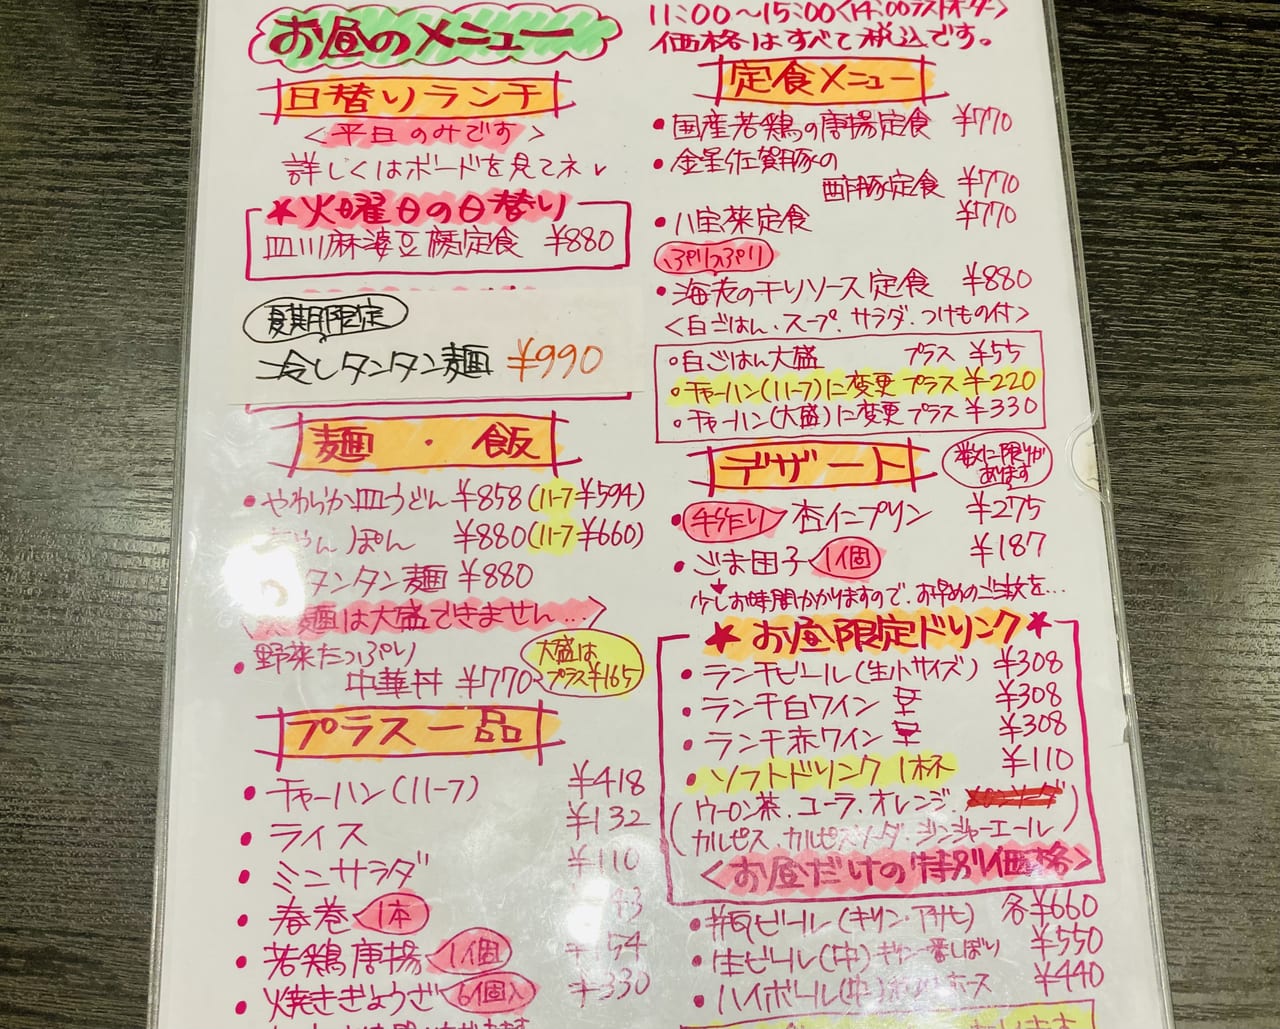 お昼のメニュー
日替りランチ
<平日のみです>
詳しくはボードを見てネ
★火曜日の日替り
皿川麻婆豆腐定食 ¥880
夏期限定
冷しタンタン麺 ¥990
麺・飯
・やわらか皿うどん ¥858(ハーフ¥594)
ちゃんぽん ¥880(ハーフ¥660)
タンタン麺 ¥880
麺は大盛できません…
・野菜たっぷり
中華丼 ¥770
大盛は
プラス¥165
プラス一品
・チャーハン(ハーフ) ¥418
・ライス ¥132
・ミニサラダ ¥110
・春巻 1本
・若鶏唐揚 1個
・焼きぎょうざ 6個入 ¥330
11:00〜15:00<14:00ラストオーダー>
価格はすべて税込です。
定食メニュー
・国産若鶏の唐揚定食 ¥770
・金星佐賀豚の
酢豚定食 ¥770
・八宝菜定食 ¥770
ぷりっぷり
・海老のチリソース定食 ¥880
<白ごはん.スープ.サラダ.つけもの付>
・白ごはん大盛 プラス ¥55
・チャーハン(ハーフ)に変更 プラス ¥220
・チャーハン(大盛)に変更 プラス ¥330
デザート
数に限りが
あります
・手作り 杏仁プリン ¥275
・ごま団子 1個 ¥187
少しお時間かかりますので、お早めのご注文を…
★お昼限定ドリンク★
・ランチビール(生小サイズ) ¥308
・ランチ白ワイン ¥308
・ランチ赤ワイン ¥308
・ソフトドリンク 1杯 ¥110
(ウーロン茶.コーラ.オレンジ.
カルピス.カルピスソーダ.ジンジャーエール)
<お昼だけの特別価格>
・瓶ビール(キリン・アサヒ) 各¥660
・生ビール(中)キリン一番しぼり ¥550
・ハイボール(中) ¥440